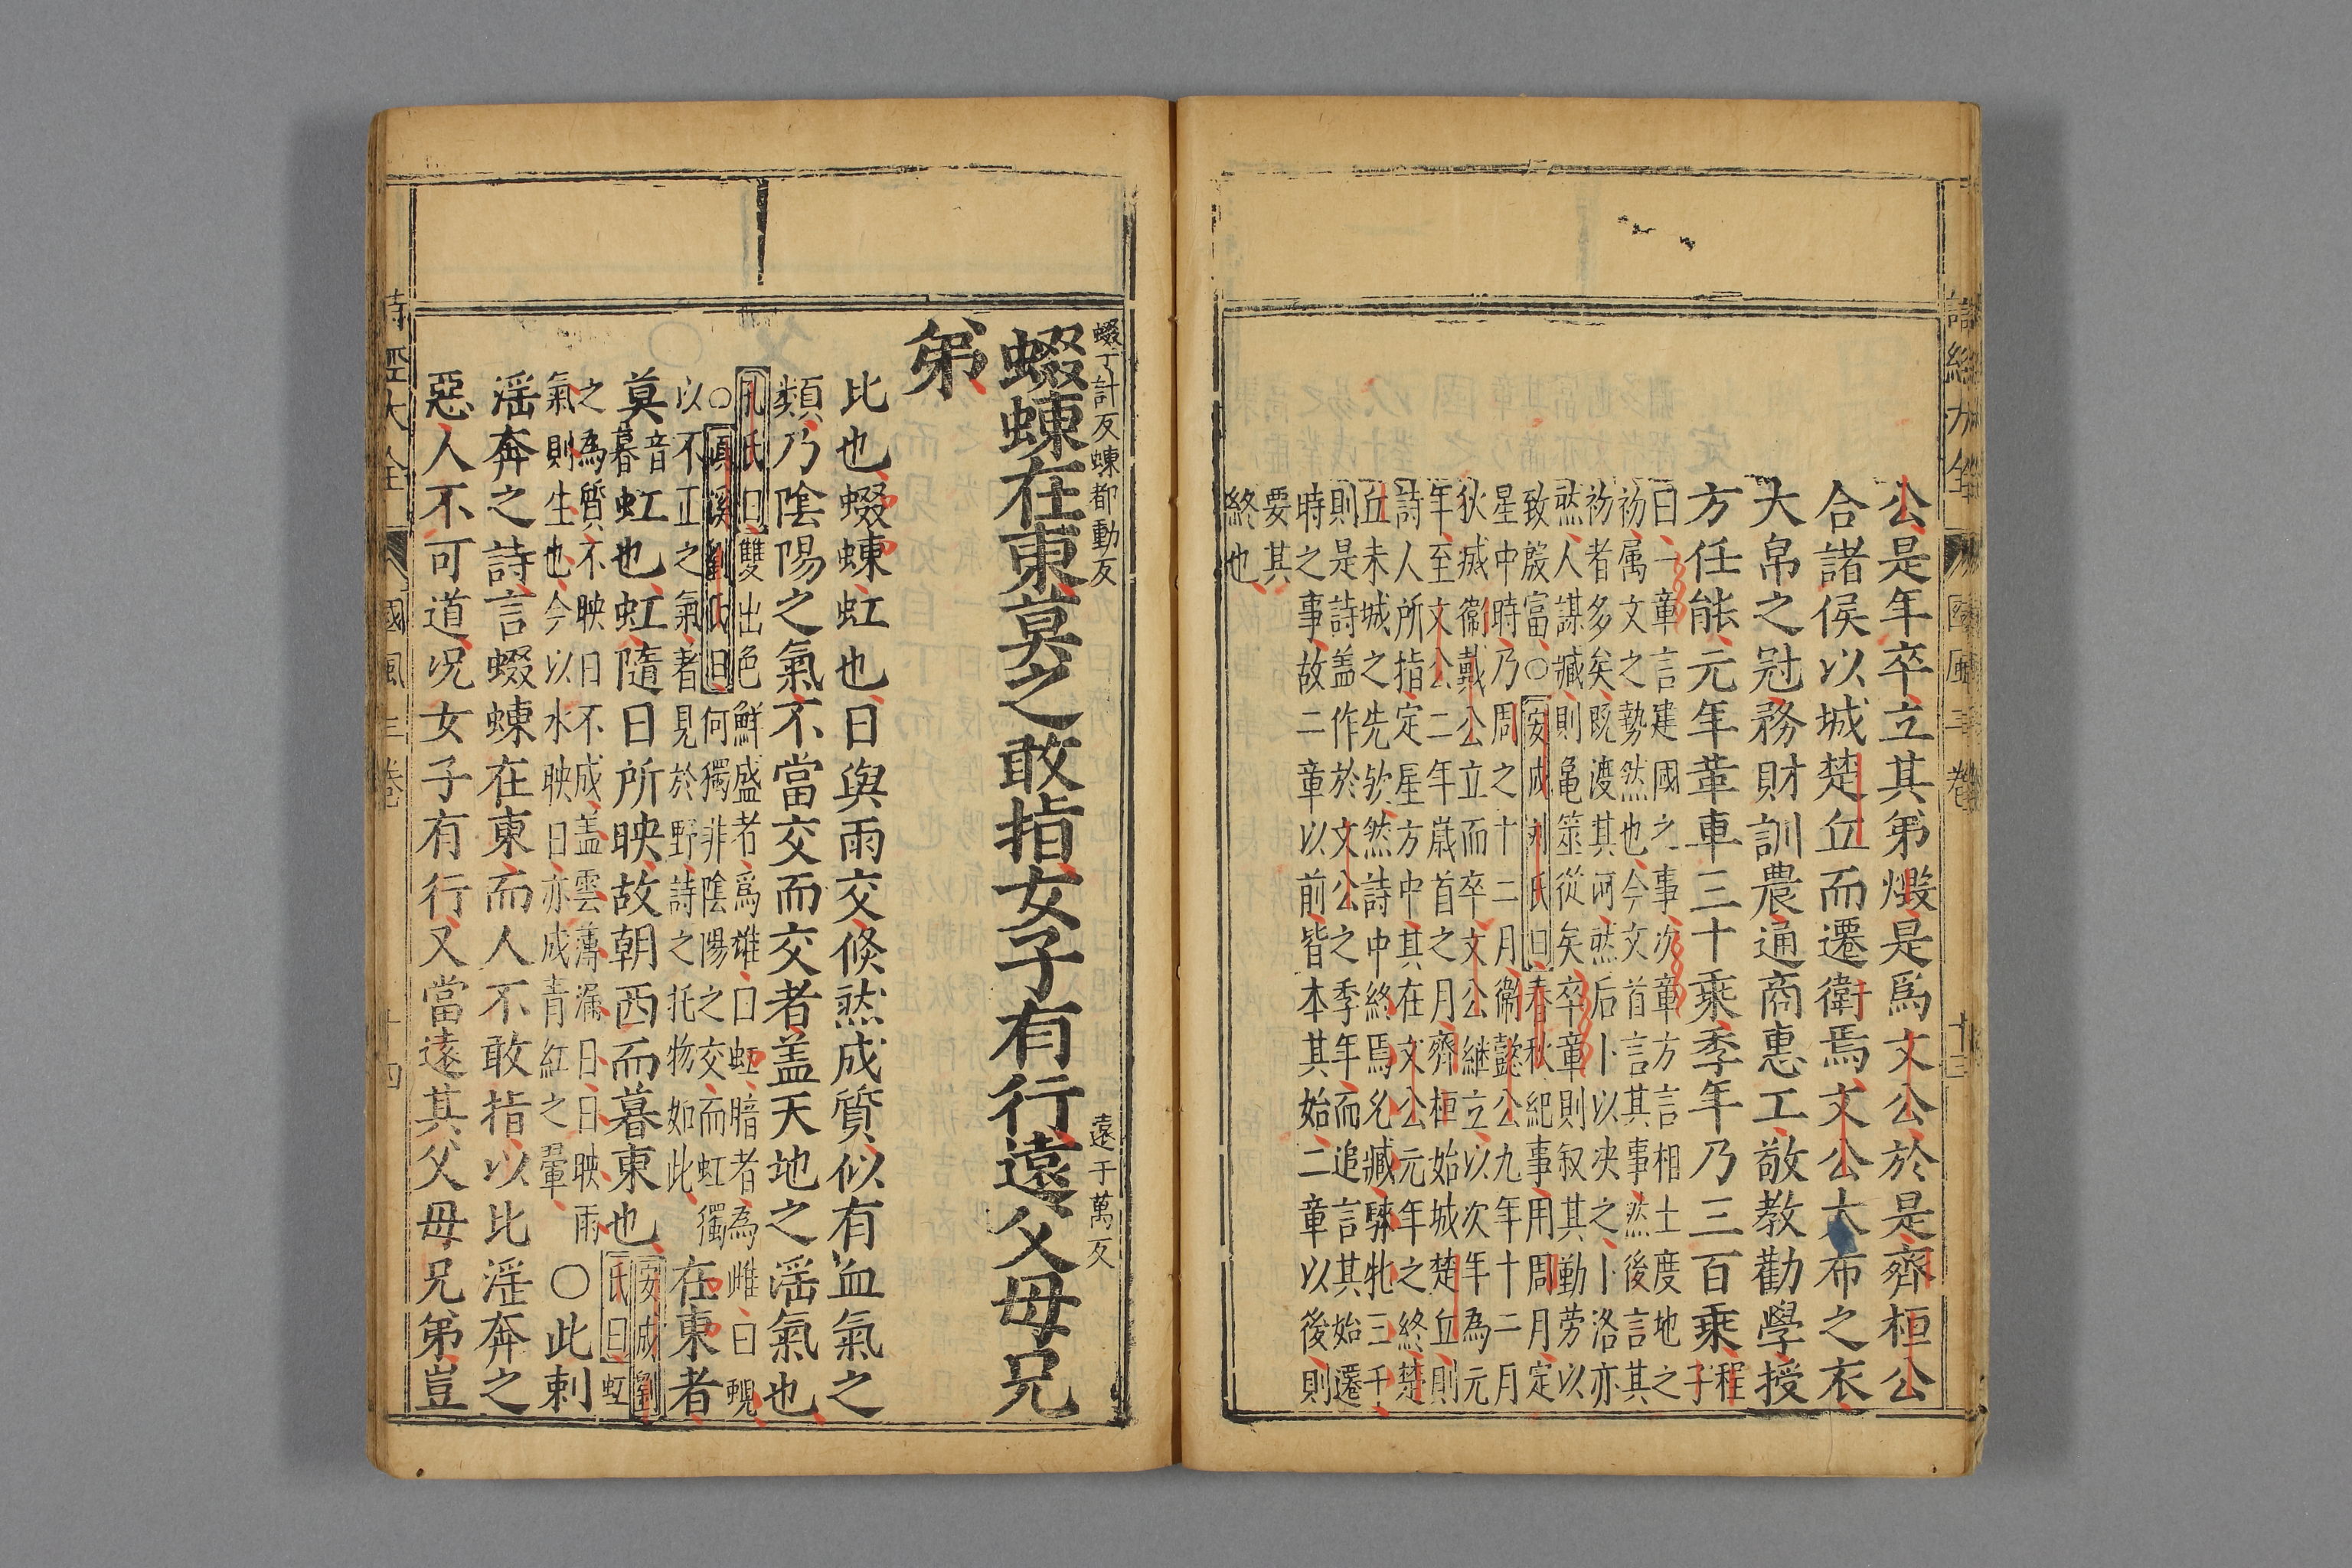 公是年卒立其弟燬是爲文公於是齊桓公
合諸侯以城楚丘而遷衛焉文公大布之衣
大帛之冠務財訓農通商惠工敬教勸學授
方任能元年革車三十乘季年乃三百乘程
子
曰一章言建國之事次章方言相土度地之
初属文之勢然也今文首言其事然後言其
初者多矣既渡其河然后卜以决之卜洛亦
然人謀臧則龜筮從矣卒章則叙其勤劳以
致殷富○安成刘氏曰春秋紀事用周月定
星中時乃周之十二月衞懿公九年十二月
狄滅衞戴公立而卒文公継立以次年為元
年至文公二年歳首之月齊桓始城楚丘則
詩人所指定星方中其在文公元年之終楚
丘未城之先欤然詩中終焉允臧騋牝三千
則是詩盖作於文公之季年而追言其始遷
時之事故二章以前皆本其始二章以後則
要其
終也
詩經大全
國風三卷
十三
蝃丁計反蝀都動反
遠于萬反
蝃蝀在東莫之敢指女子有行遠父母兄
弟
比也蝃蝀虹也日與雨交倏然成質似有血氣之
類乃陰陽之氣不當交而交者盖天地之淫氣也
孔氏曰雙出色鮮盛者爲雄曰虹暗者為雌曰蜺
○須溪劉氏曰何獨非陰陽之交而虹獨
以不正之氣者見於野詩之托物如此
在東者
莫音
暮虹也虹隨日所映故朝西而暮東也
安成劉
氏曰虹
之為質不映日不成盖雲薄漏日日映雨
氣則生也今以水映日亦成青紅之暈
○此刺
淫奔之詩言蝃蝀在東而人不敢指以比淫奔之
惡人不可道况女子有行又當遠其父母兄弟豈
詩經大全
國風三卷
十四